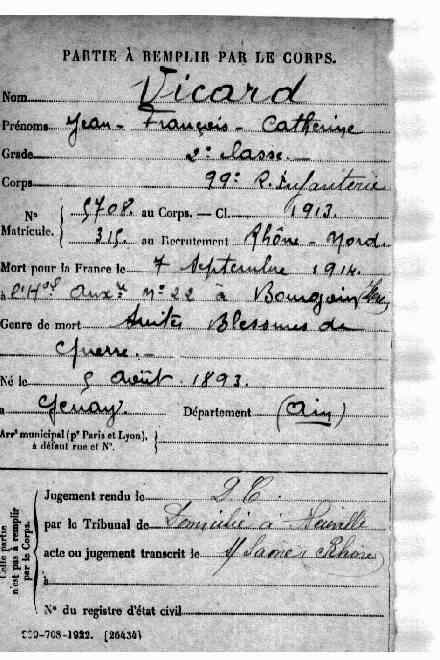 PARTIE À REMPLIR PAR LE CORPS.
Nom Vicard
Prénoms Jean - François - Catherine
Grade 2e classe.
Corps 99e R. Infanterie
Nº Matricule. { 5708. au Corps. — Cl. 1913.
315. au Recrutement Rhône - Nord.
Mort pour la France le 7 Septembre 1914.
à l'Hal Auxre Nº 22 à Bourgoin
Genre de mort Suites Blessures de
Guerre. -
Né le 5 Août 1893.
à Genay. Département (Ain)
Arrt municipal (pr Paris et Lyon), à défaut rue et Nº.
Cette partie n'est pas à remplir par le Corps.
Jugement rendu le D.C.
par le Tribunal de Domicilié à Neuville
acte ou jugement transcrit le s/ Saône (Rhône)
à
Nº du registre d'état civil
-708-1922. [26434]